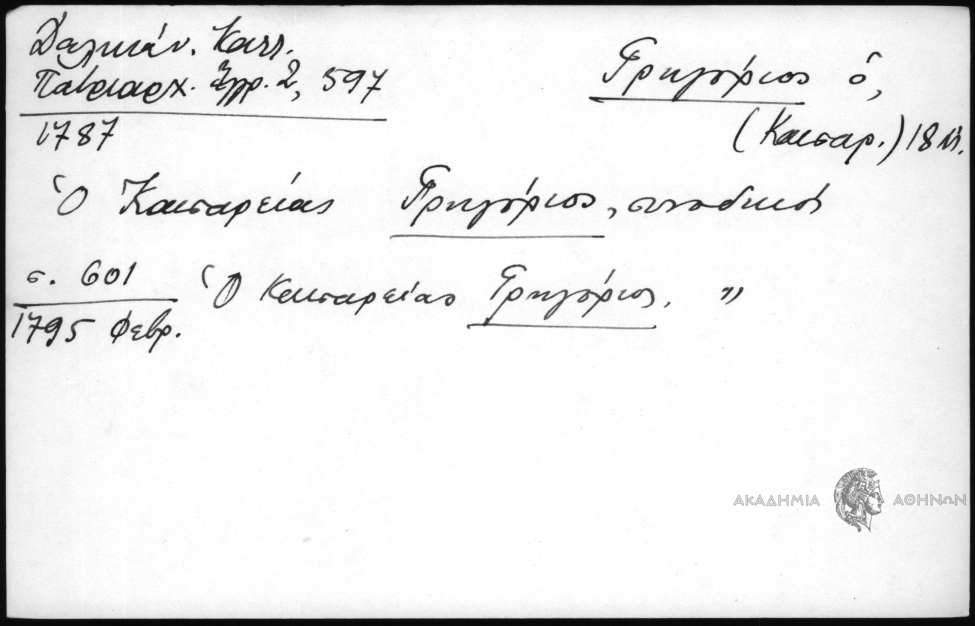 Δαλικάν. Καλλ.
Πατριαρχ. Ἔγγρ. 2, 597
1787
Γρηγόριος ὁ,
(Καισαρ.) 18 αἰ.
Ὁ Καισαρείας Γρηγόριος, συνοδικοὶ
σ. 601
1795 Φεβρ.
Ὁ Καισαρείας Γρηγόριος, "
ΑΚΑΔΗΜΙΑ ΑΘΗΝΩΝ